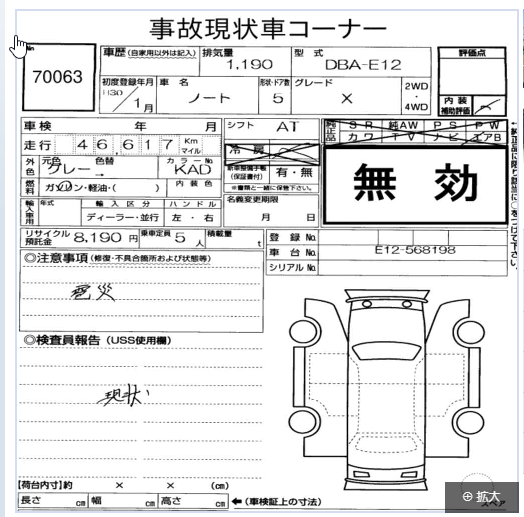 事故現状車コーナー
No
70063
車歴 (自家用以外は記入) 排気量 型式 評価点
1,190 DBA-E12
初度登録年月 車名 形状・ドア数 グレード 2WD・4WD
H30/1月 ノート 5 X
内装補助評価
車検 年 月 シフト AT
純正品 SR 純AW PS PW
カワ TV ナビ エアB
走行 46,617 Km マイル 冷房
無効
外色 元色 色替 カラーNo.
グレー→ KAD
新車整備手帳(保証書付) 有・無
※書類と一緒に保管下さい。
燃料 ガソリン・軽油・( ) 内装色
名義変更期限
月 日
輸入車用 年式 輸入区分 ハンドル
ディーラー・並行 左・右
リサイクル預託金 8,190円 乗車定員 5人 積載量 t
登録No.
車台No. E12-568198
シリアルNo.
◎注意事項 (修復・不具合箇所および状態等)
雹災
◎検査員報告 (USS使用欄)
現状
【荷台内寸】約 × × (cm)
長さ cm 幅 cm 高さ cm ←(車検証上の寸法)
スペア
拡大